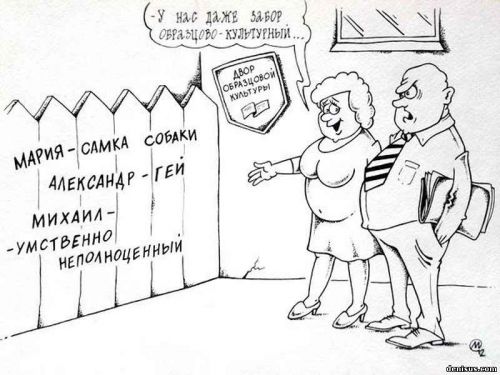 -У НАС ДАЖЕ ЗАБОР
ОБРАЗЦОВО-КУЛЬТУРНЫЙ...
ДВОР
ОБРАЗЦОВОЙ
КУЛЬТУРЫ
МАРИЯ-САМКА СОБАКИ
АЛЕКСАНДР-ГЕЙ
МИХАИЛ-
-УМСТВЕННО
НЕПОЛНОЦЕННЫЙ
denisus.com